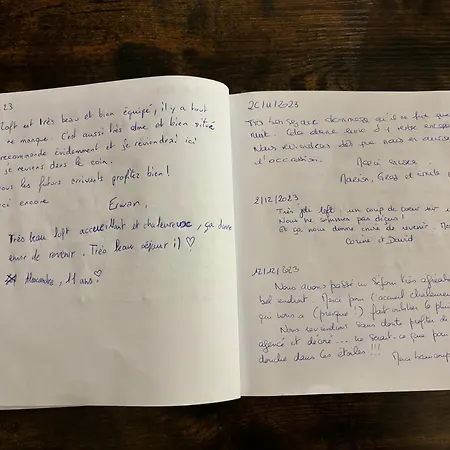 23
loft est très beau et bien équipé, il y a tout
ne manque. C'est aussi très calme et bien situé
recommande évidemment et je reviendrai ici
je reviens dans le coin.
tous les futurs arrivants profitez bien !
ci encore
Erwan.
Très beau loft accueillant et chaleureux, ça donne
envie de revenir. Très beau séjour :) ♡
Alexandre, 11 ans. ♡
26/11/2023
Très bon séjour dommage qu'il ne fut que
nuit. Cela donne envie d'y rester encore
Nous reviendrons dès que nous en aurons
l'occasion.
Merci encore.
2/12/2023
Très joli loft, un coup de cœur sur
Nous ne sommes pas déçus !
Et ça nous donne envie de revenir.
Corine et David
12/12/2023
Nous avons passé un séjour très agréable
bel endroit. Merci pour l'accueil chaleureux
qui nous a (presque !) fait oublier la pluie
Nous reviendrons sans doute profiter de
agencé et décoré ... ne serait-ce que pour
douche dans les étoiles !!!
Merci beaucoup